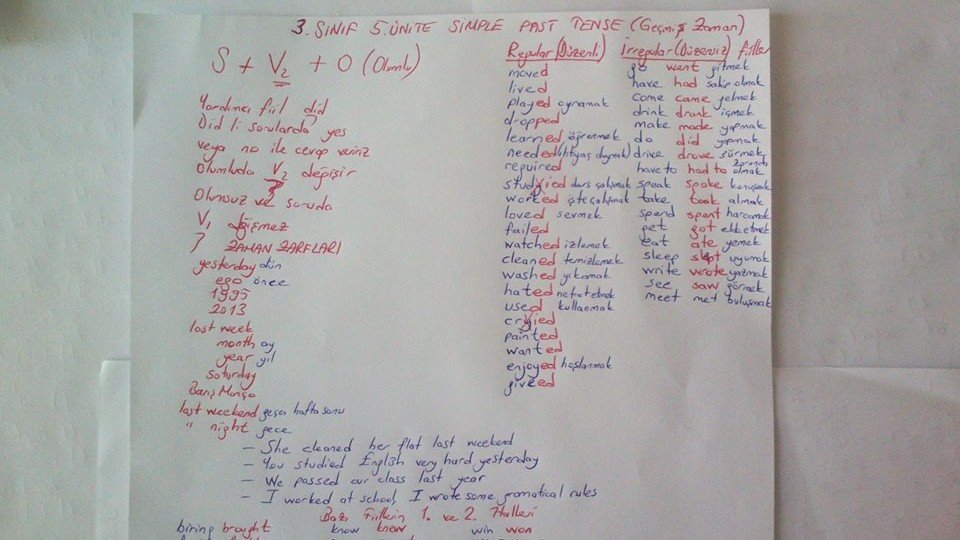 3. SINIF 5. ÜNİTE SIMPLE PAST TENSE (Geçmiş Zaman)
S + V2 + O (Olumlu)
Yardımcı fiil did
Did li sorularda yes
veya no ile cevap veririz
Olumluda V2 değişir
Olumsuz ve soruda
V1 değişmez
7 ZAMAN ZARFLARI
yesterday dün
ego önce
1995
2013
last week
month ay
year yıl
Saturday
Barış Manço
last weekend geçen hafta sonu
" night gece
Regular (Düzenli)
moved
lived
played oynamak
dropped
learned öğrenmek
needed (ihtiyaç duymak)
required
studyied ders çalışmak
worked işte çalışmak
loved sevmek
failed
watched izlemek
cleaned temizlemek
washed yıkamak
hated nefret etmek
used kullanmak
cryied
painted
wanted
enjoyed hoşlanmak
giveed
irregular (Düzensiz) fiiller
go went gitmek
have had sahip olmak
come came gelmek
drink drank içmek
make made yapmak
do did yapmak
drive drove sürmek
have to had to zorunda olmak
speak spoke konuşmak
take took almak
spend spent harcamak
get got elde etmek
eat ate yemek
sleep slept uyumak
write wrote yazmak
see saw görmek
meet met buluşmak
- She cleaned her flat last weekend
- You studied English very hard yesterday
- We passed our class last year
- I worked at school, I wrote some gramatical rules
Bazı Fiillerin 1. ve 2. Halleri
biring brought know knew win won